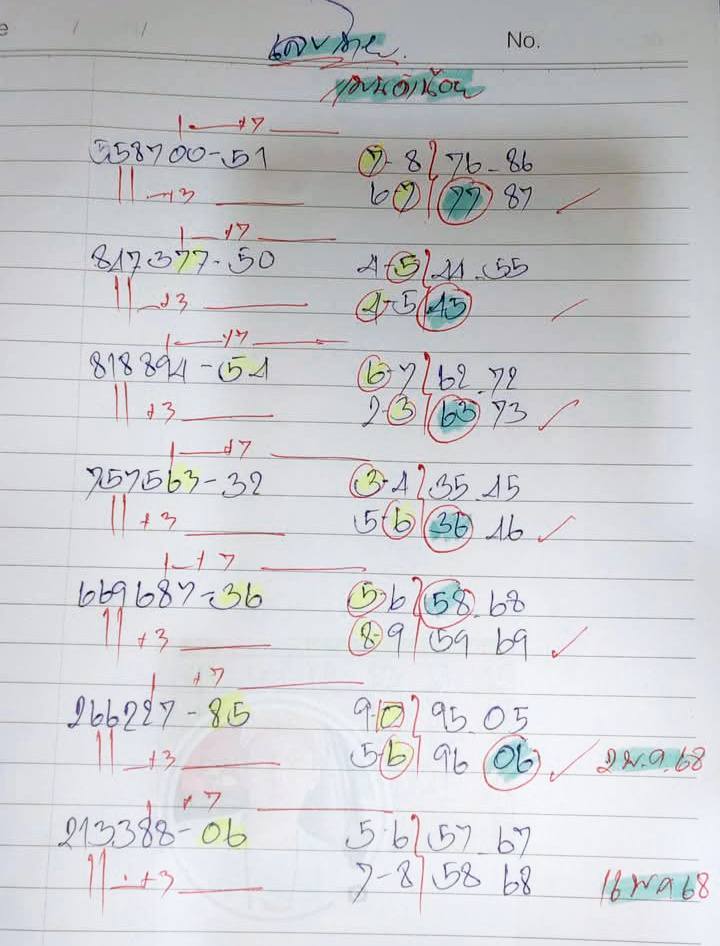 No.
เลขท้าย
1 +7
558700-51 7-8 76-86
+3 6 7 77 87
+7
817377-50 4-5 44.55
+3 4-5 45
+7
818894-54 6-7 62-72
+3 2-3 63 73
+7
757563-32 3-4 35.45
+3 5-6 36 46
+7
669687-36 5-6 58.68
+3 8-9 59 69
+7
266227-85 9-0 95.05
+3 5-6 96 06 2 พ.ค.68
+7
213388-06 5-6 57-67
+3 7-8 58 68 16 พค 68